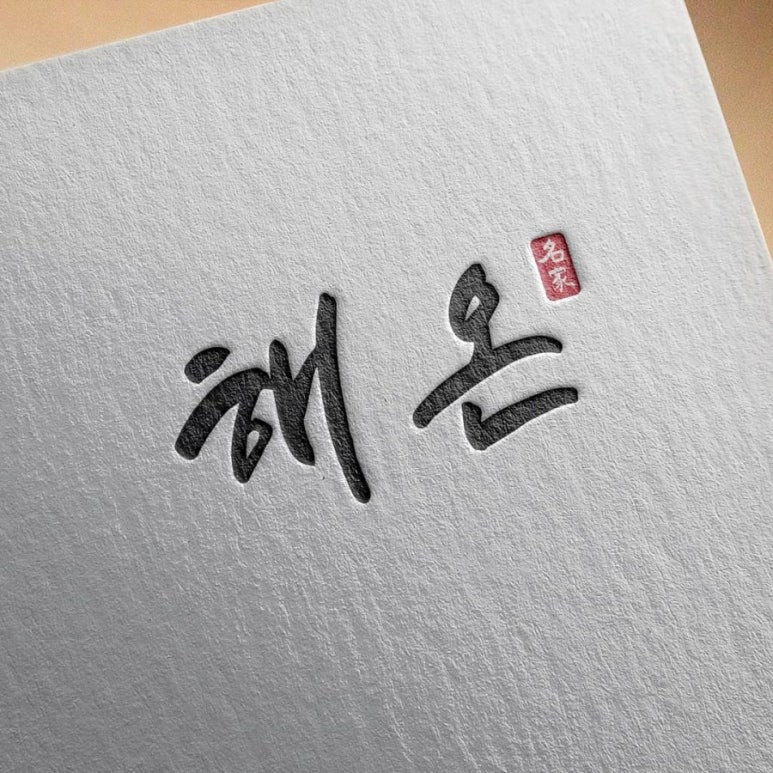 해온
名家